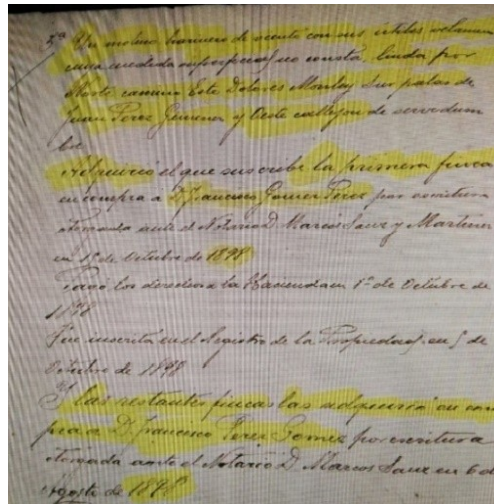 5ª Un molino harinero de viento con sus útiles
cuya medida superficial no consta, linda por
Norte camino Este Dolores Sur palas de
Juan Perez Gimenez y Oeste callejon de servidum
bre
Adquirió el que suscribe la primera finca
en compra a D. Francisco Gomez Perez por escritura
otorgada ante el Notario D. Marcos Sanz y Martinez
en de Octubre de 1898
Pagó los derechos a la Hacienda en 1º de Octubre de
1898
Fue inscrita en el Registro de la Propiedad en 5 de
Octubre de 1898
Y las restantes fincas las adquirió en com
pra a D. Francisco Perez Gomez por escritura
otorgada ante el Notario D. Marcos Sanz en 6 de
Agosto de 1898